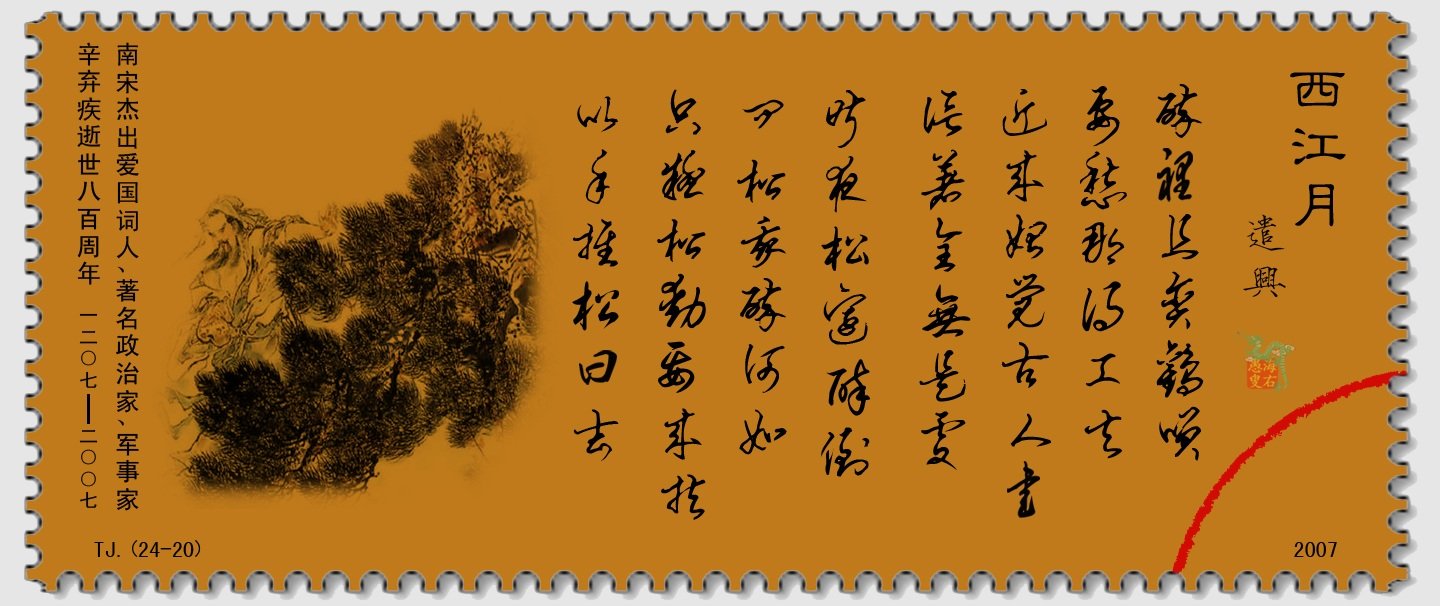 西江月
遣興
海右
愚叟
醉裡且貪歡笑
要愁那得工夫
近来始觉古人書
信著全無是處
昨夜松邊醉倒
问松我醉何如
只疑松動要来扶
以手推松曰去
南宋杰出爱国词人、著名政治家、军事家
辛弃疾逝世八百周年 一二〇七—二〇〇七
TJ.(24-20)
2007